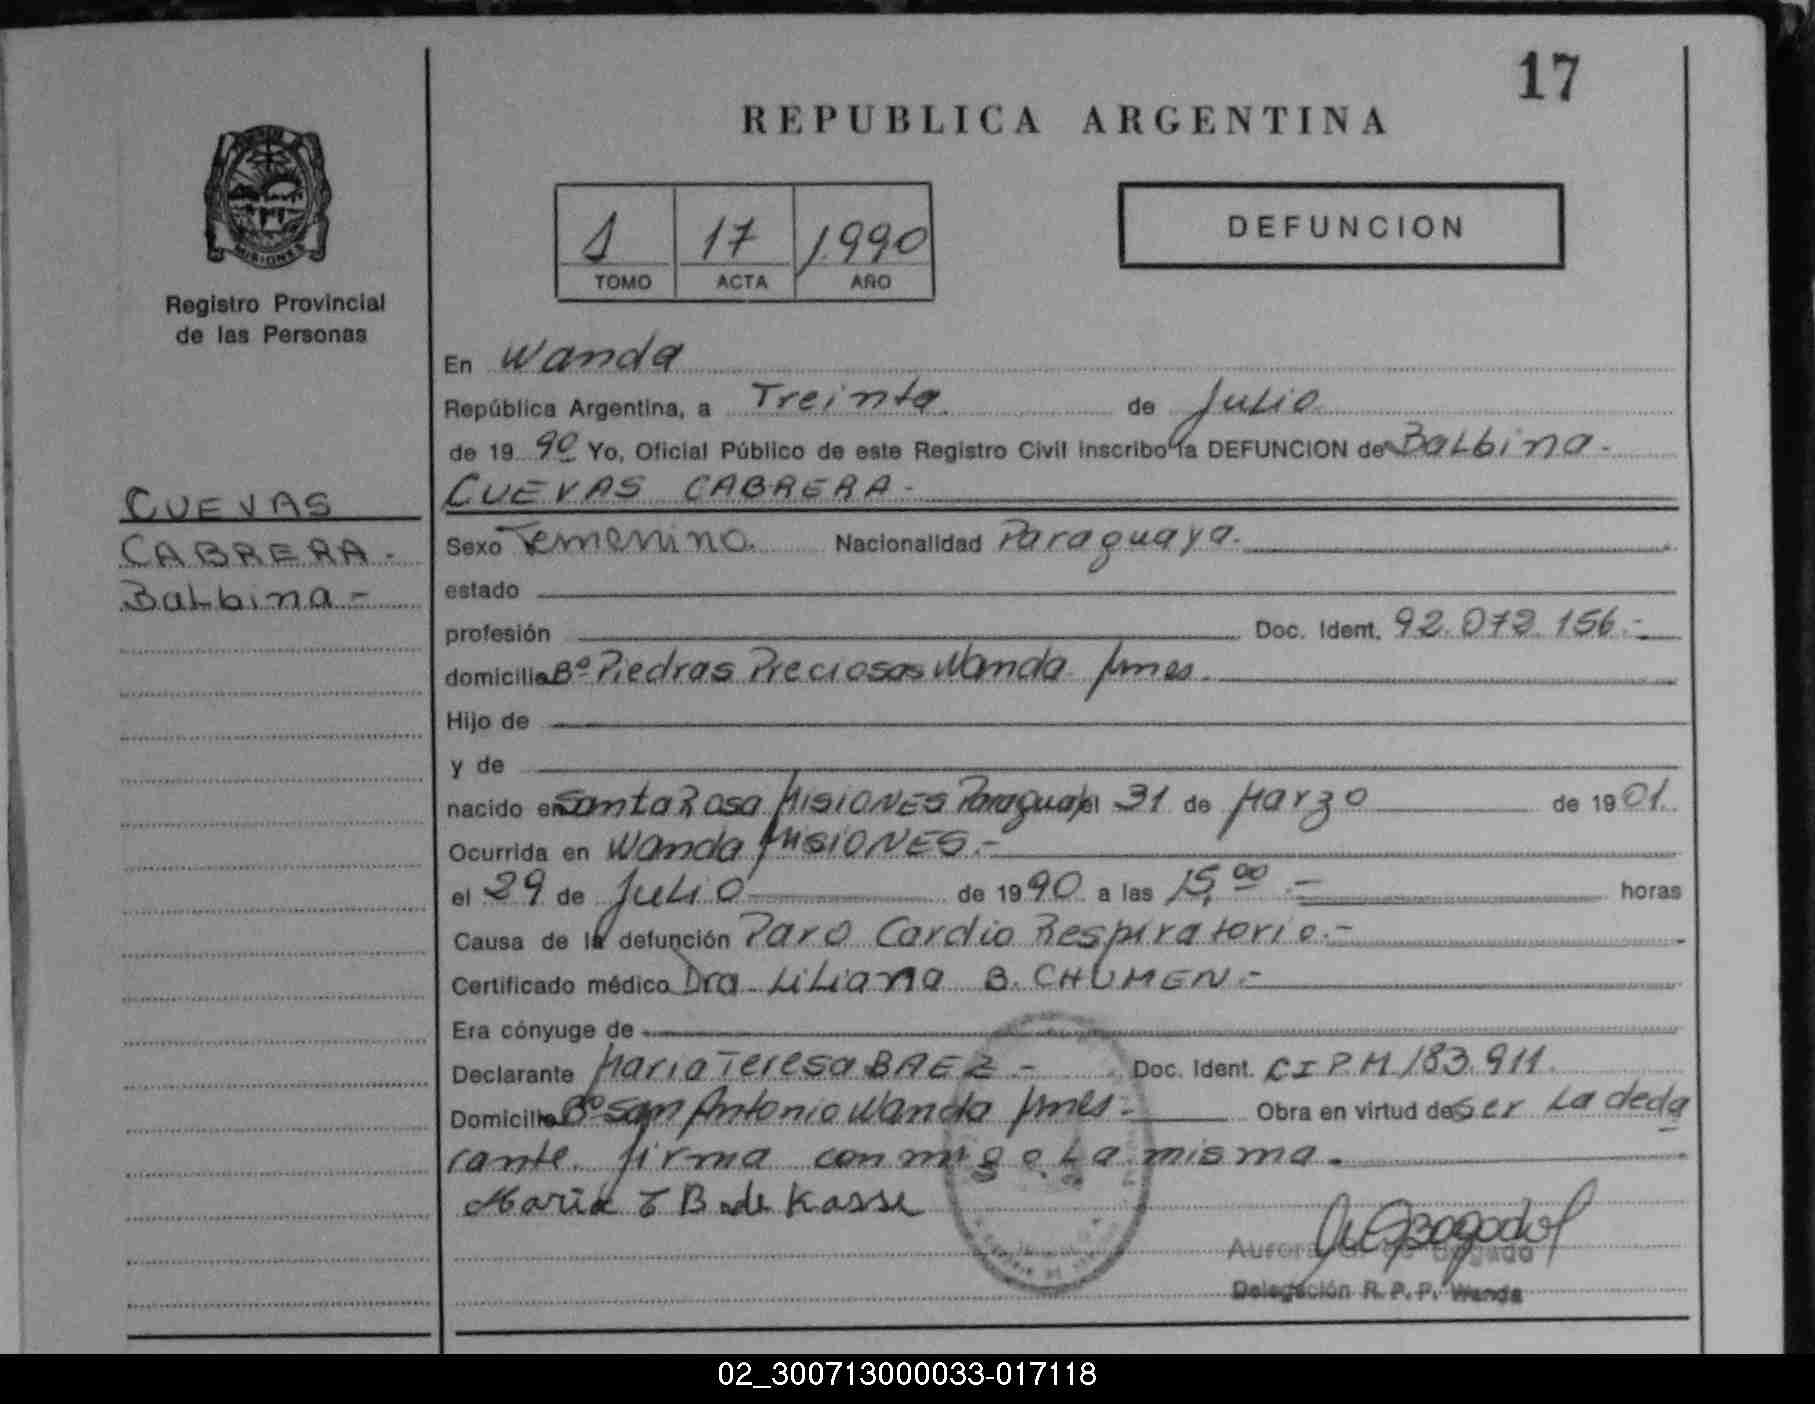 17
REPUBLICA ARGENTINA
MISIONES
Registro Provincial
de las Personas
1 17 1.990
TOMO ACTA AÑO
DEFUNCION
CUEVAS
CABRERA.-
BaLbina -
En Wanda
República Argentina, a Treinta de Julio
de 19 90 Yo, Oficial Público de este Registro Civil inscribo la DEFUNCION de BaLbina.-
CUEVAS CABRERA.-
Sexo Femenino. Nacionalidad Paraguaya.
estado
profesión Doc. Ident. 92.072.156.-
domicilio Bº Piedras Preciosas Wanda Mnes.
Hijo de
y de
nacido en Santa Rosa MISIONES Paraguay el 31 de Marzo de 19 01.
Ocurrida en Wanda MISIONES.-
el 29 de Julio de 19 90 a las 15,00.- horas
Causa de la defunción Paro Cardio Respiratorio.-
Certificado médico Dra. LiLiana B. CHUMEN.-
Era cónyuge de
Declarante Maria Teresa BAEZ - Doc. Ident. CI P M 183.911.
Domicilio Bº San Antonio Wanda Mnes.- Obra en virtud de ser La decla
rante firma conmigo La misma.
Maria T B de Kasse
Aurora
Delegación R. P. P. Wanda
02_300713000033-017118